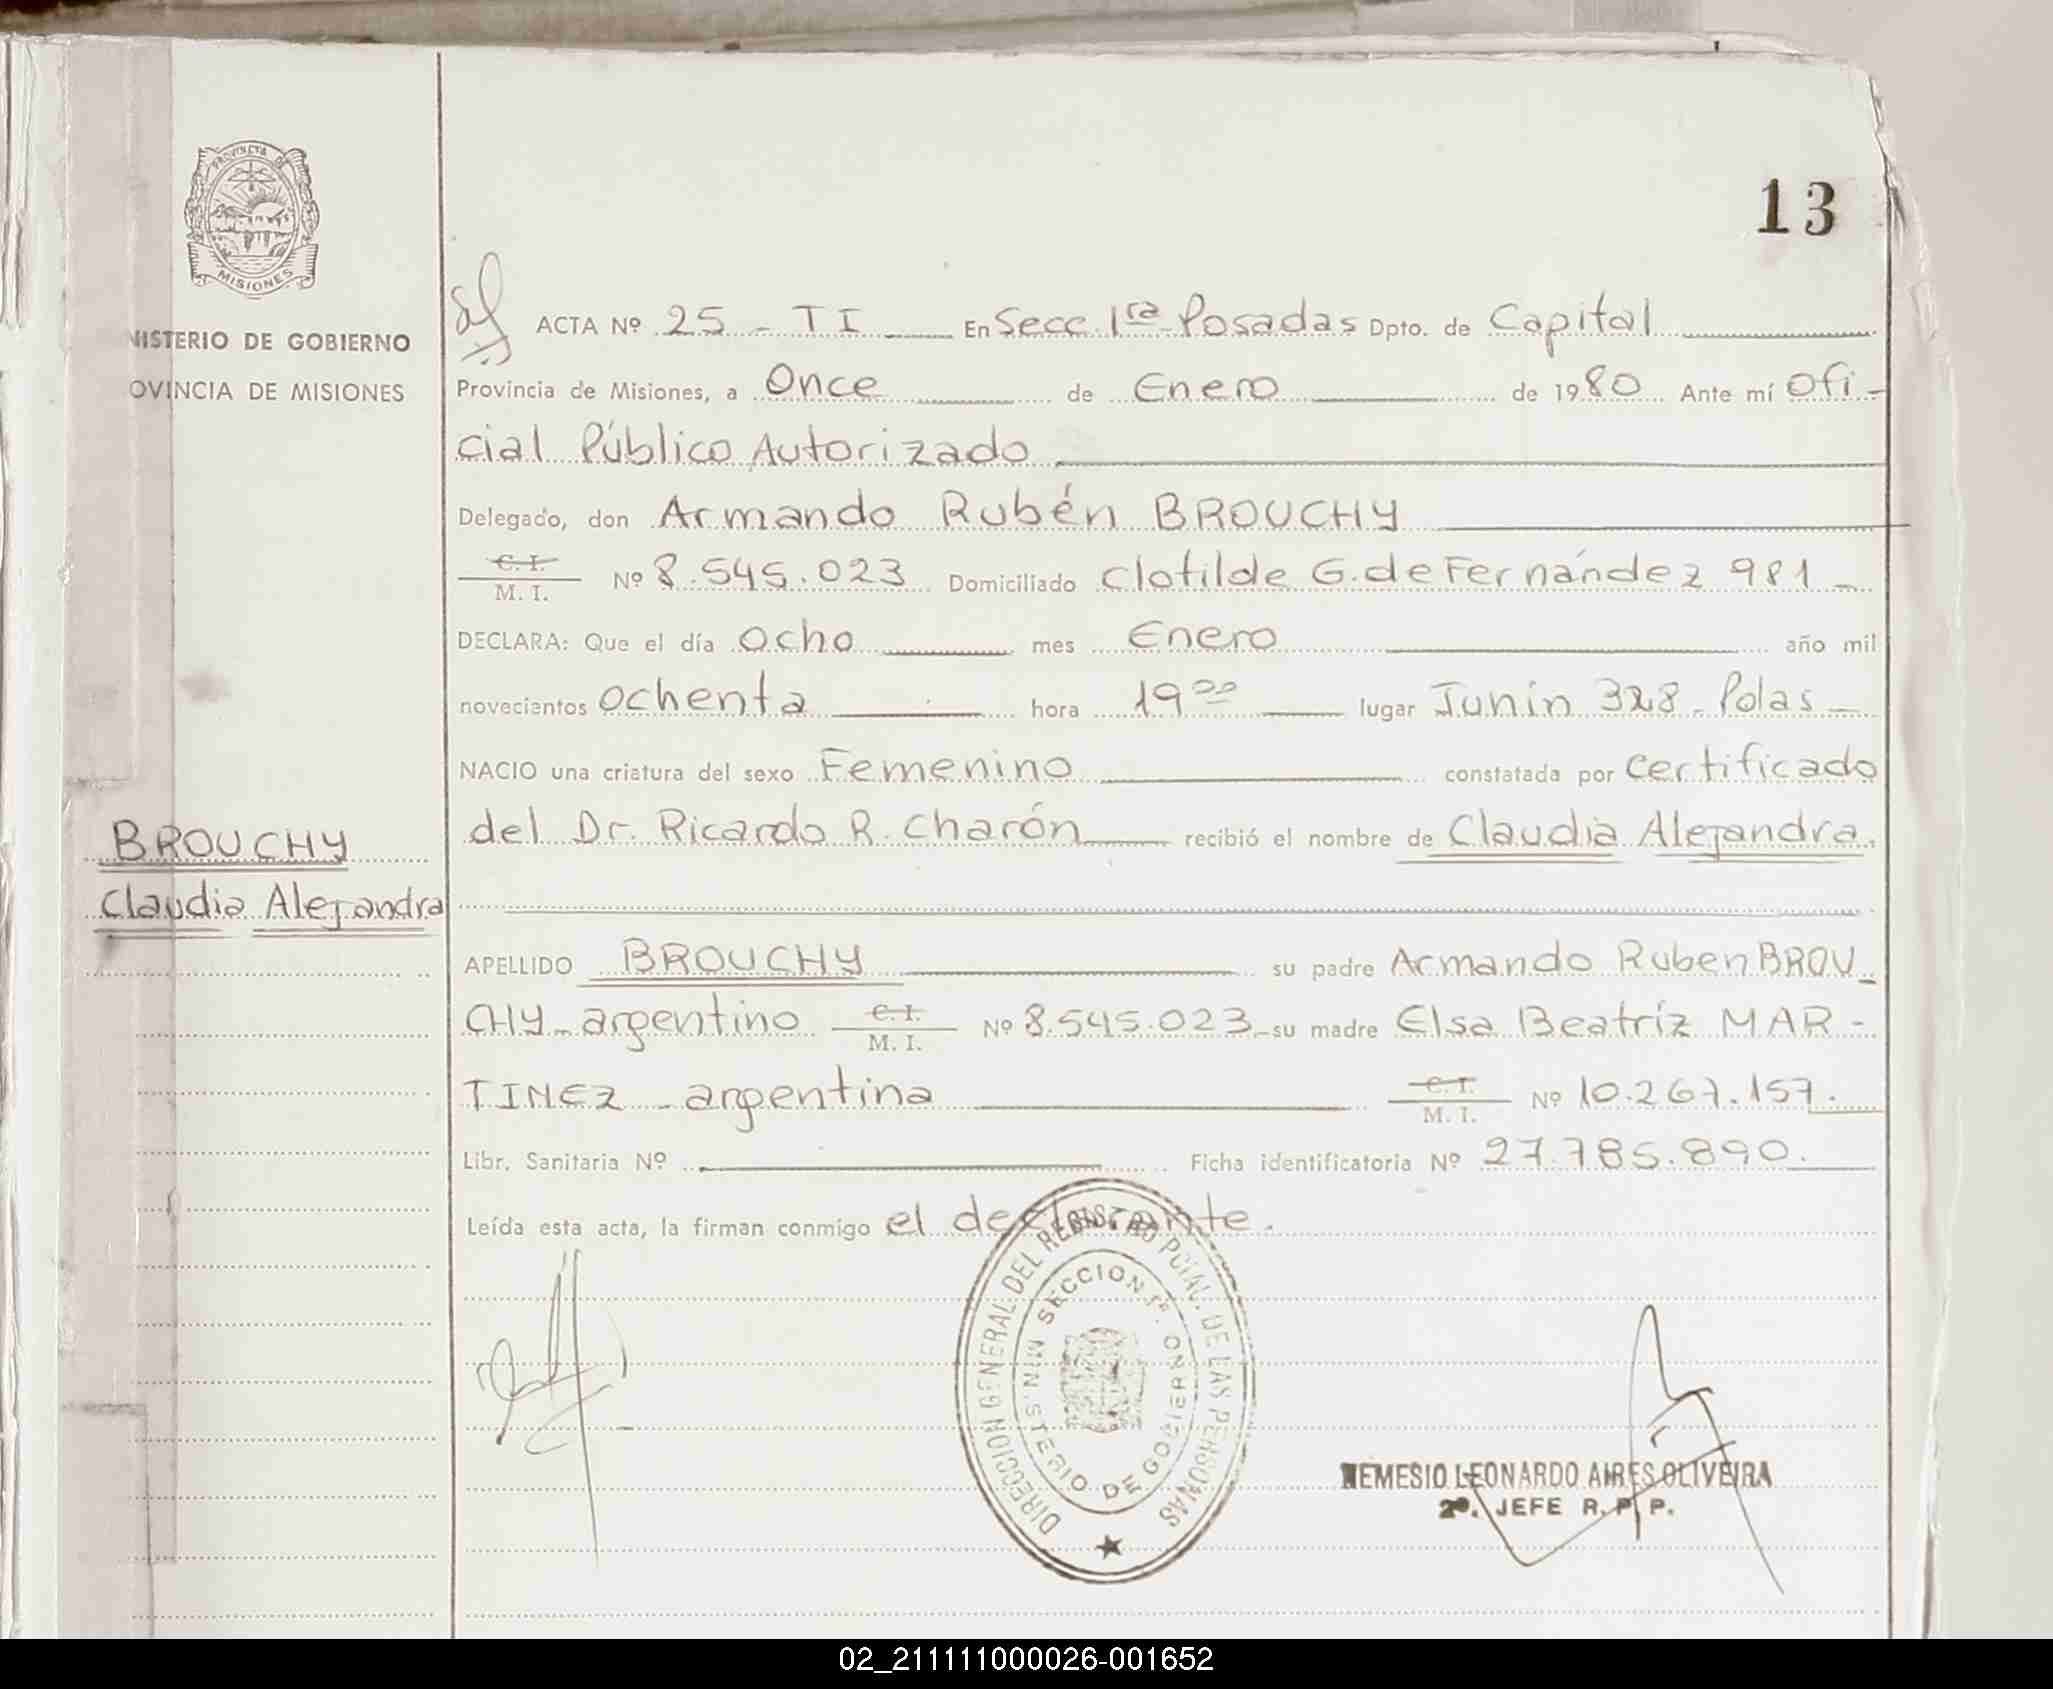 PROVINCIA DE
MISIONES
NISTERIO DE GOBIERNO
OVINCIA DE MISIONES
13
ACTA Nº 25 - T I En Secc. 1ra Posadas Dpto. de Capital
Provincia de Misiones, a Once de Enero de 1980 Ante mí Ofi-
cial Público Autorizado
Delegado, don Armando Rubén BROUCHY
C. I. M. I. Nº 8.545.023 Domiciliado Clotilde G. de Fernández 981 -
DECLARA: Que el día Ocho mes Enero año mil
novecientos ochenta hora 19 00 lugar Junín 328 - Pdas -
NACIO una criatura del sexo Femenino constatada por certificado
del Dr. Ricardo R. Charón recibió el nombre de Claudia Alejandra.
BROUCHY
Claudia Alejandra
APELLIDO BROUCHY su padre Armando Ruben BROU-
CHY - argentino C. I. M. I. Nº 8.545.023 - su madre Elsa Beatríz MAR-
TINEZ - argentina C. I. M. I. Nº 10.267.157.
Libr. Sanitaria Nº Ficha identificatoria Nº 27.785.890.
Leída esta acta, la firman conmigo el declarante.
DIRECCION GENERAL DEL REGISTRO PCIAL. DE LAS PERSONAS
SECCION 1ª.
MINISTERIO DE GOBIERNO
NEMESIO LEONARDO AIRES OLIVEIRA
2º. JEFE R. P. P.
02_211111000026-001652